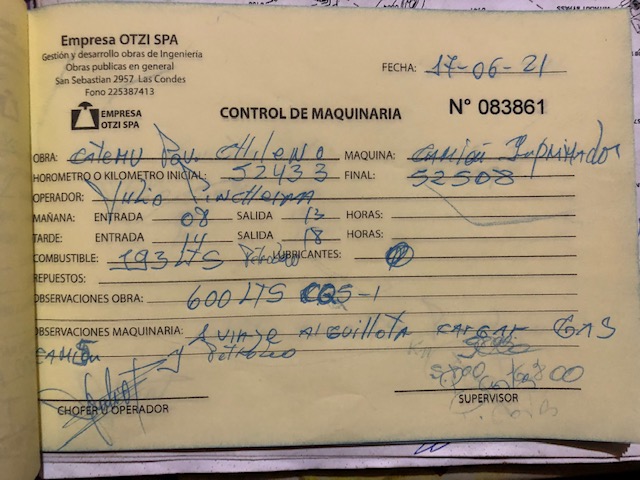 Empresa OTZI SPA
Gestión y desarrollo obras de Ingeniería
Obras públicas en general
San Sebastian 2957. Las Condes
Fono 225387413
EMPRESA
OTZI SPA
FECHA: 17-06-21
CONTROL DE MAQUINARIA
N° 083861
OBRA: CATEMU CHILENO MAQUINA: CAMION Imprimador
HOROMETRO O KILOMETRO INICIAL: 52433 FINAL: 52508
OPERADOR: Julio
MAÑANA: ENTRADA 08 SALIDA 13 HORAS:
TARDE: ENTRADA 14 SALIDA 18 HORAS:
COMBUSTIBLE: 193 LTS LUBRICANTES:
REPUESTOS:
OBSERVACIONES OBRA: 600 LTS CQS-1
OBSERVACIONES MAQUINARIA: 1 viaje A Quillota CARGAR
CAMION
CHOFER U OPERADOR
SUPERVISOR